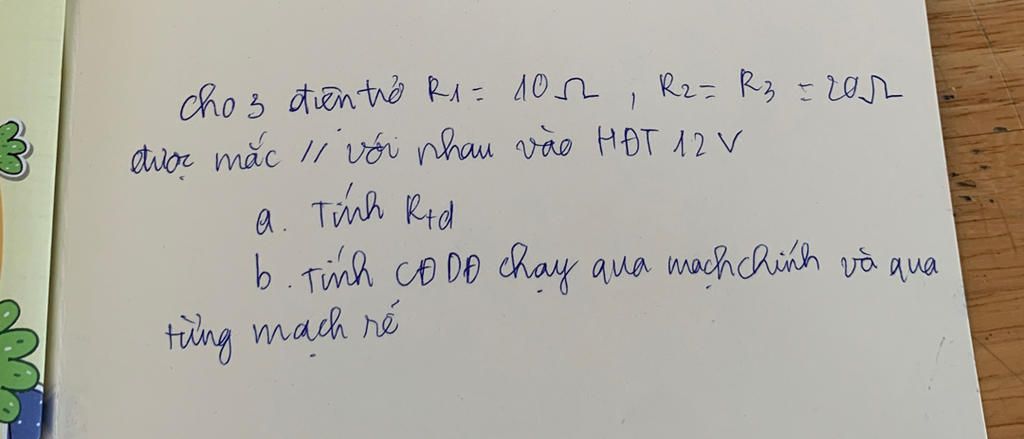 Cho 3 điện trở R1 = 10Ω, R2 = R3 = 20Ω
được mắc // với nhau vào HĐT 12V
a. Tính Rtd
b. Tính CĐDĐ chạy qua mạch chính và qua
từng mạch rẽ